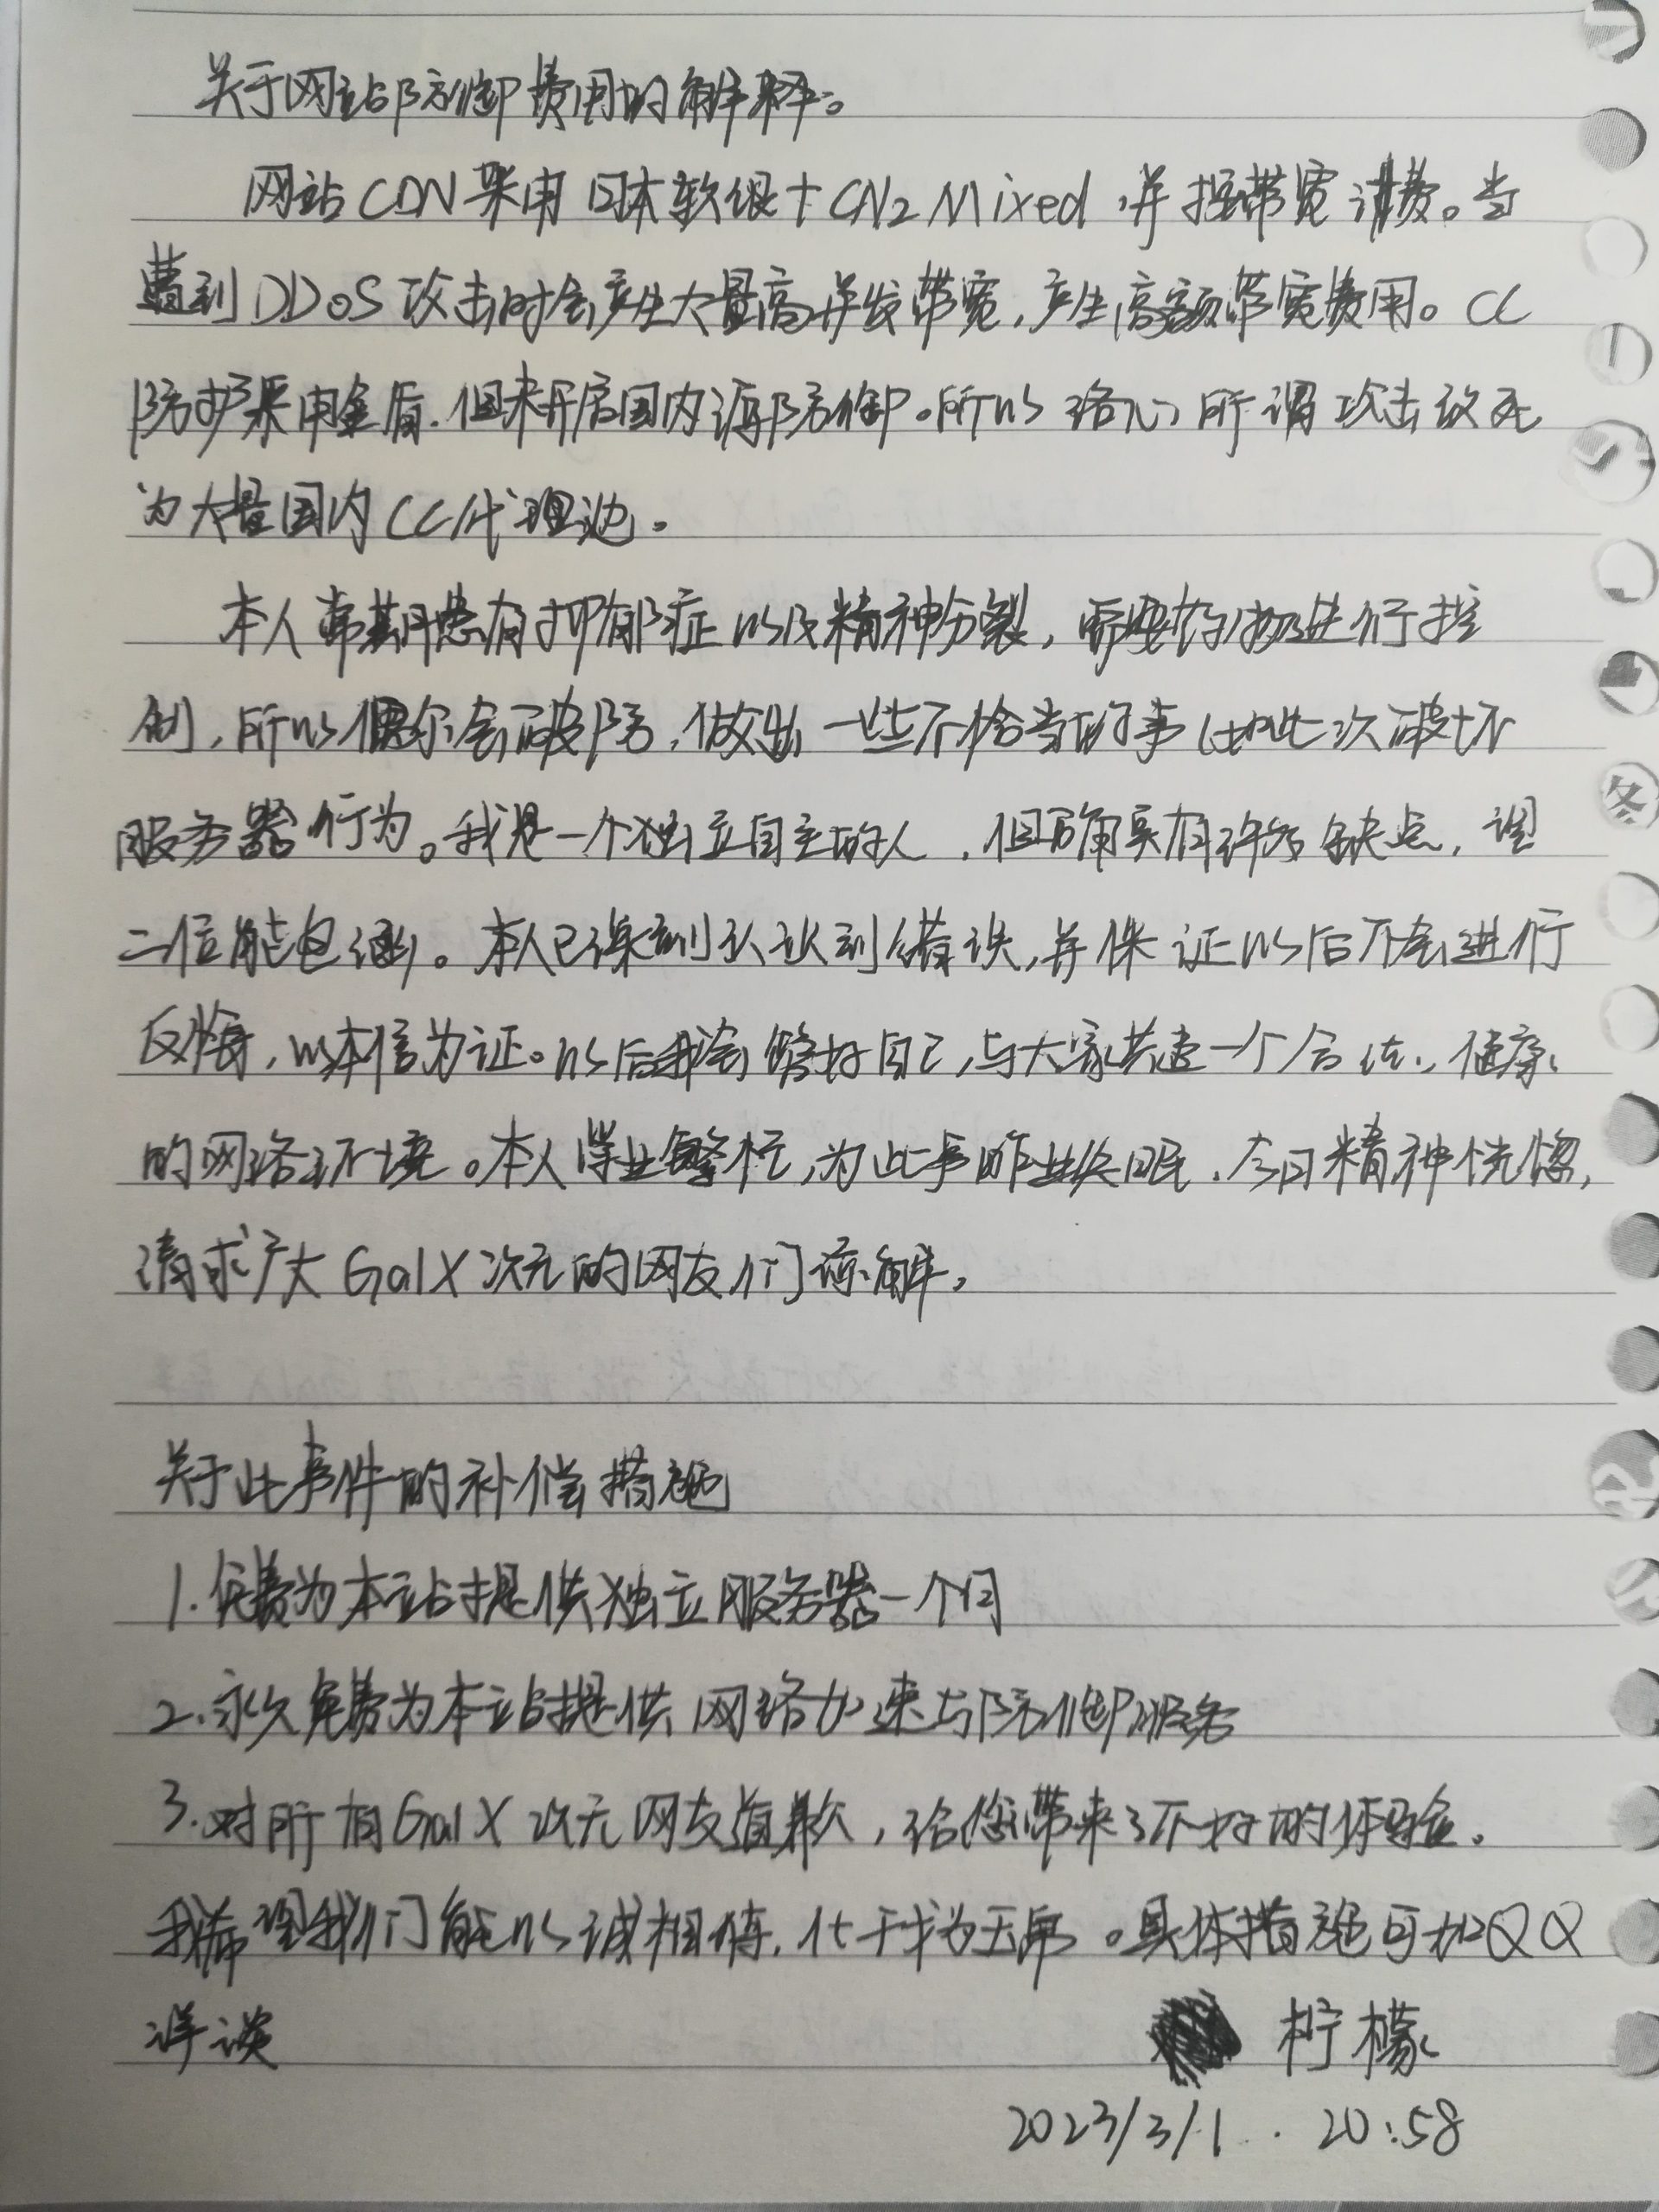 关于网站防御费用的解释。
网站CDN采用日本软银+CN2 Mixed,并按带宽计费。当
遭到DDoS攻击时会产生大量高并发带宽,产生高额带宽费用。CC
防护采用金盾.但未开启国内源防御。所以 所谓攻击
为大量国内CC代理池。
本人常期患有抑郁症以及精神分裂,需要药物进行控
制,所以偶尔会破防,做出一些不恰当的事 比如此次破坏
服务器行为。我是一个独立自主的人,但确实有许多缺点,望
二位能包涵。本人已深刻认识到错误,并保证以后不会进行
反悔,以本信为证。以后我会 好自己,与大家共建一个合法、健康、
的网络环境。本人学业繁忙,为此事昨 失眠.今日精神恍惚,
请求广大GalX次元的网友们谅解,
关于此事件的补偿措施
1.免费为本站提供独立服务器一个月
2.永久免费为本站提供网络加速与防御服务
3.对所有GalX次元网友道歉,给您带来了不好的体验。
我希望我们能以诚相待.化干戈为玉帛。具体措施可加QQ
详谈
柠檬
2023/3/1. 20:58
冬